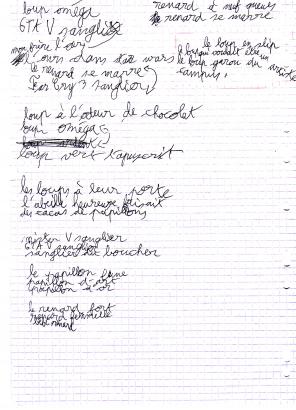 loup oméga
GTA V sanglier
renard à neuf queues
le renard se marre
mon frère l'ours
l'ours dans star wars
le renard se marre
Far Cry 3 sanglier
le loup en slip
le loup qui voulait être un artiste
le loup garou du campus
loup à l'odeur de chocolat
loup oméga
loup vert tapuscrit
les loups à leur porte
l'abeille heureuse faisait
des cacas de papillons
mission V sanglier
GTA sanglier
sanglier de boucher
le papillon
papillon d'art
papillon d'or
le renard fort
renard famille